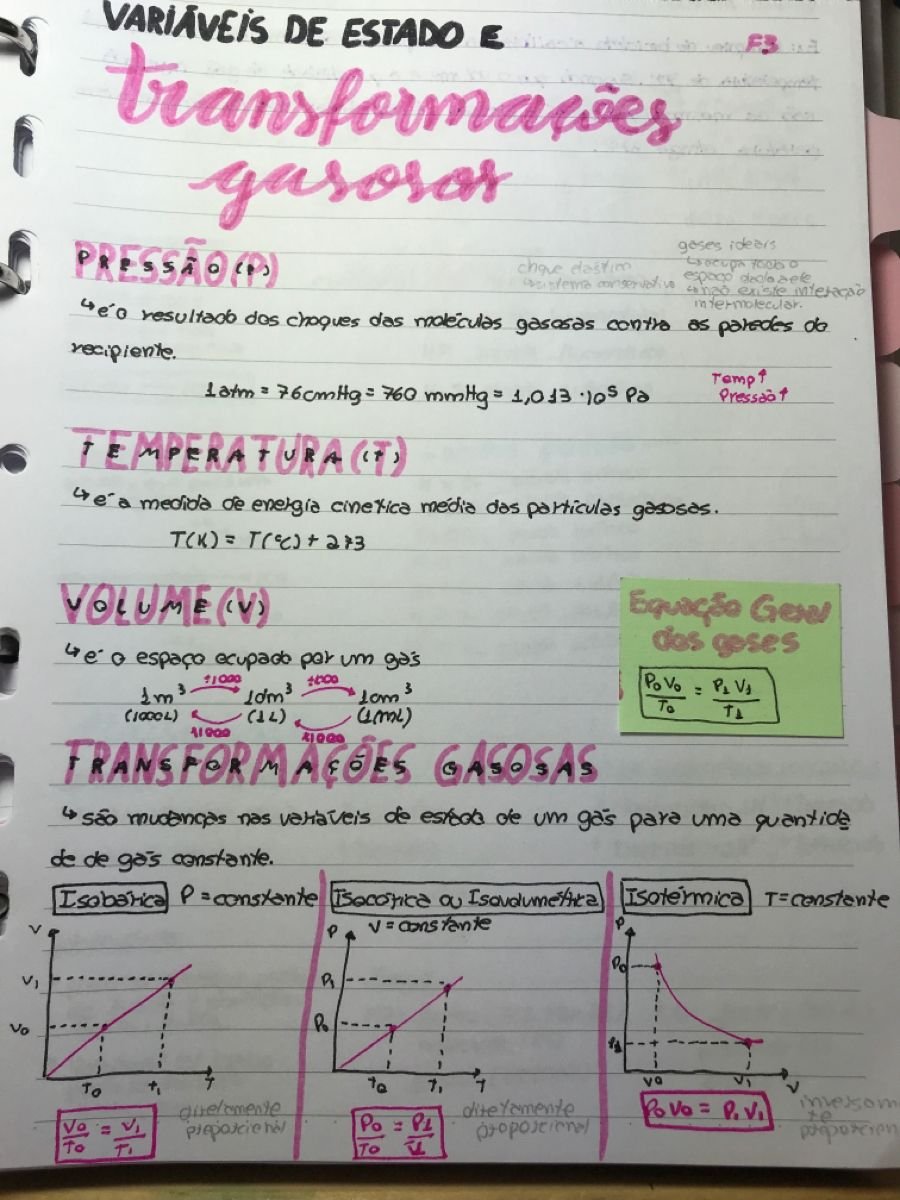 VARIÁVEIS DE ESTADO E
F3
transformações
gasosas
PRESSÃO (P)
choque elástim
↳ sistema conservativo
gases ideais
↳ ocupa todo o
espaço dado a ele
↳ não existe interação
intermolecular.
↳ é o resultado dos choques das moléculas gasosas contra as paredes do
recipiente.
1 atm = 76 cmHg = 760 mmHg = 1,013 · 10⁵ Pa
Temp ↑
Pressão ↑
TEMPERATURA (T)
↳ é a medida de energia cinetica média das particulas gasosas.
T(K) = T(°C) + 273
VOLUME (V)
↳ é o espaço ocupado por um gás
÷1000 ÷1000
1m³ 1dm³ 1cm³
(1000L) (1L) (1mL)
x1000 x1000
Equação Geral
dos gases
P₀V₀/T₀ = P₁V₁/T₁
TRANSFORMAÇÕES GASOSAS
↳ são mudanças nas variáveis de estado de um gás para uma quantida
de de gás constante.
Isobárica P = constante
V
V₁
V₀
T₀ T₁ T
V₀/T₀ = V₁/T₁
diretamente
proposcional
Isocórica ou Isovolumétrica
V = constante
P
P₁
P₀
T₀ T₁ T
P₀/T₀ = P₁/V₁
diretamente
proporcional
Isotérmica T = constante
P
P₀
P₁
V₀ V₁ V
P₀V₀ = P₁V₁